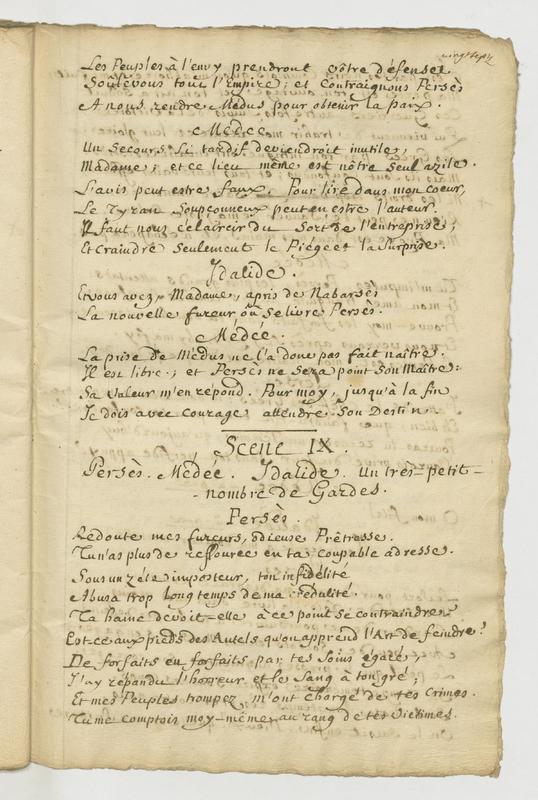 vingt sept
Les Peuples à l'envy prendront vôtre défense.
Soûlevons tout l'Empire; et contraignons Persès
A nous rendre Médus pour obtenir la paix.
Médée
Un Secours si tardif deviendroit inutile;
Madame; et ce lieu même est nôtre seul azile.
L'avis peut estre faux. Pour lire dans mon coeur,
Le Tyran soupçonneux peut en estre l'auteur.
Il faut nous éclaircir du Sort de l'entreprise;
Et craindre seulement le Piége et la Surprise.
Idalide.
Et vous avez, Madame, apris de Nabarsès
La nouvelle fureur où se livre Persès.
Médée.
La prise de Médus ne l'a donc pas fait naître.
Il est libre; et Persès ne sera point son Maître:
Sa Valeur m'en répond. Pour moy, jusqu'à la fin
Je dois avec courage attendre son Destin.
Scene IX.
Persès. Médée. Idalide. Un très-petit-
-nombre de Gardes.
Persès.
Redoute mes fureurs, odieuse Prêtresse.
Tu n'as plus de ressource en ta coupable adresse.
Sous un zéle imposteur, ton infidélité
Abusa trop longtemps de ma crédulité.
Ta haine devoit-elle à ce point se contraindre?
Est-ce aux pieds des Autels qu'on apprend l'Art de feindre?
De forfaits en forfaits par tes Soins égaré,
J'ay répandu l'horreur et le Sang à ton gré;
Et mes Peuples trompez m'ont chargé de tes Crimes.
Tu me comptois moy-même au rang de tes Victimes.